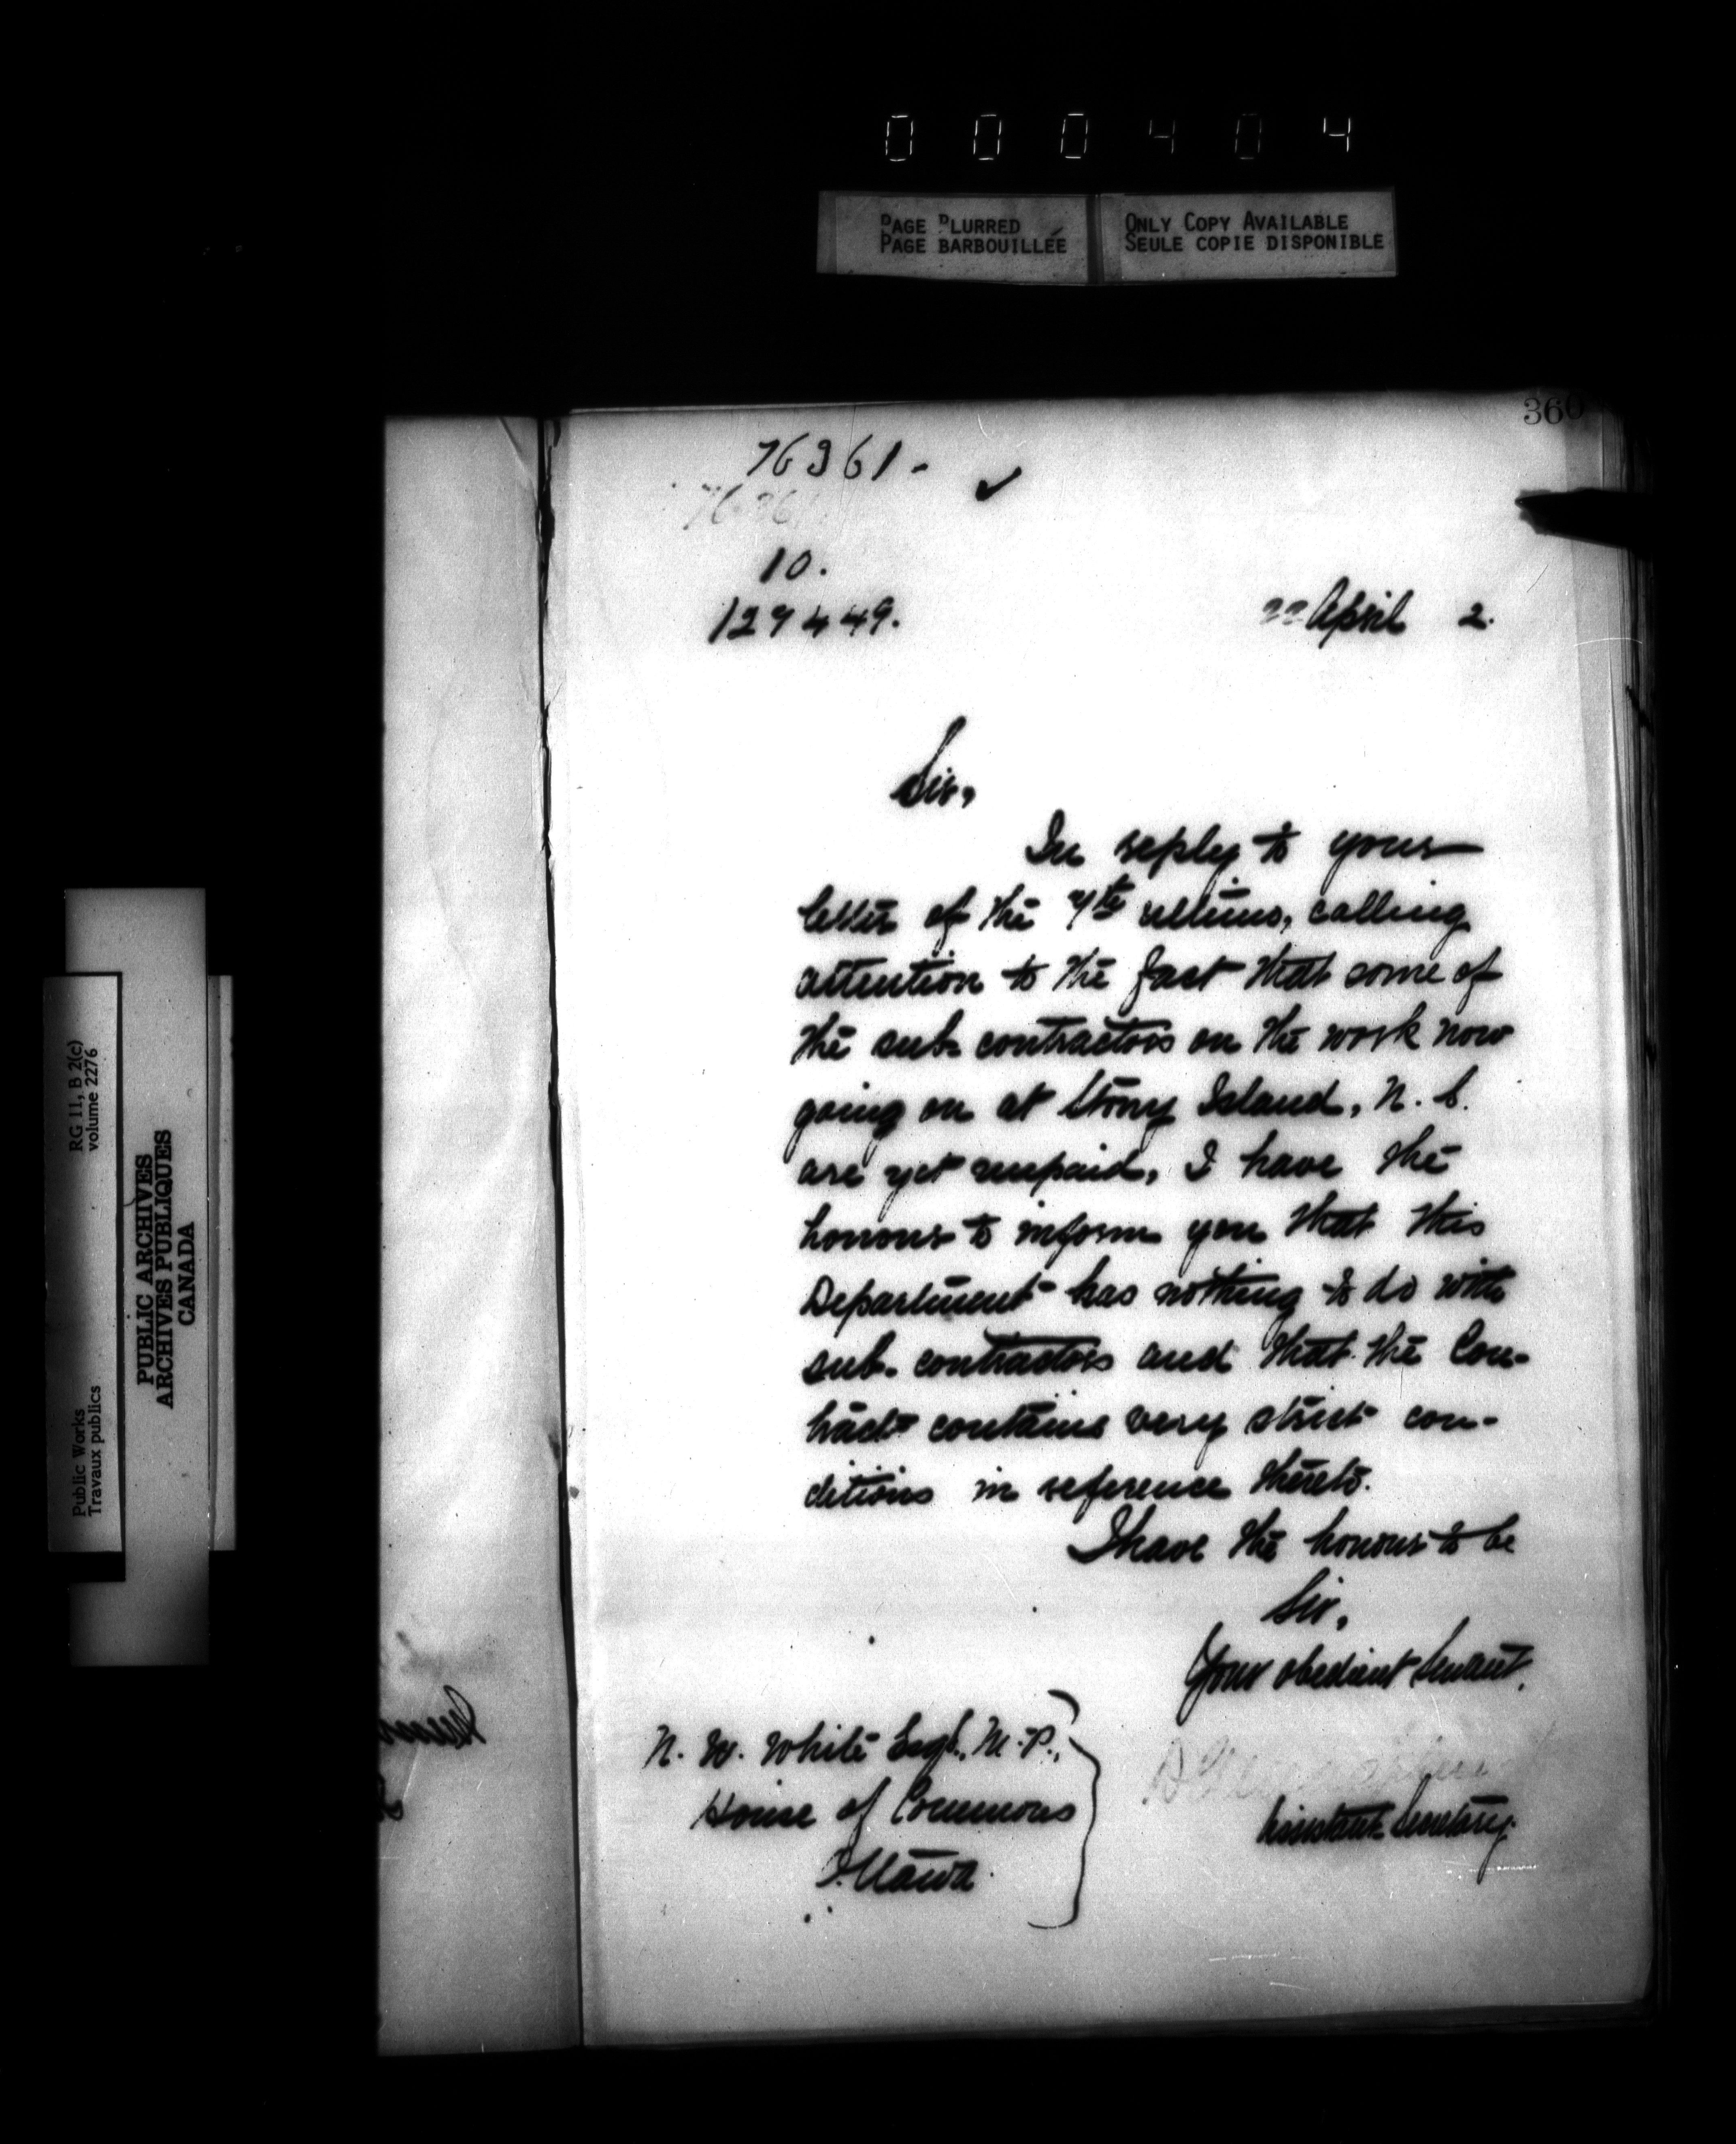 000404
PAGE BLURRED
PAGE BARBOUILLÉE
ONLY COPY AVAILABLE
SEULE COPIE DISPONIBLE
360
76361.
76361
10.
127449.
22 April 2.
Sir,
In reply to your
letter of the 7th ultimo, calling
attention to the fact that some of
the sub contractors on the work now
going on at Stony Island, N. S.
are yet unpaid, I have the
honour to inform you that this
Department has nothing to do with
sub. contractors and that the Con-
tract contains very strict con-
ditions in reference thereto.
I have the honour to be
Sir,
Your obedient Servant,
Assistant Secretary.
N. W. White Esq., M.P.,
House of Commons
Ottawa.
RG 11, B 2(c)
volume 2276
Public Works
Travaux publics
PUBLIC ARCHIVES
ARCHIVES PUBLIQUES
CANADA